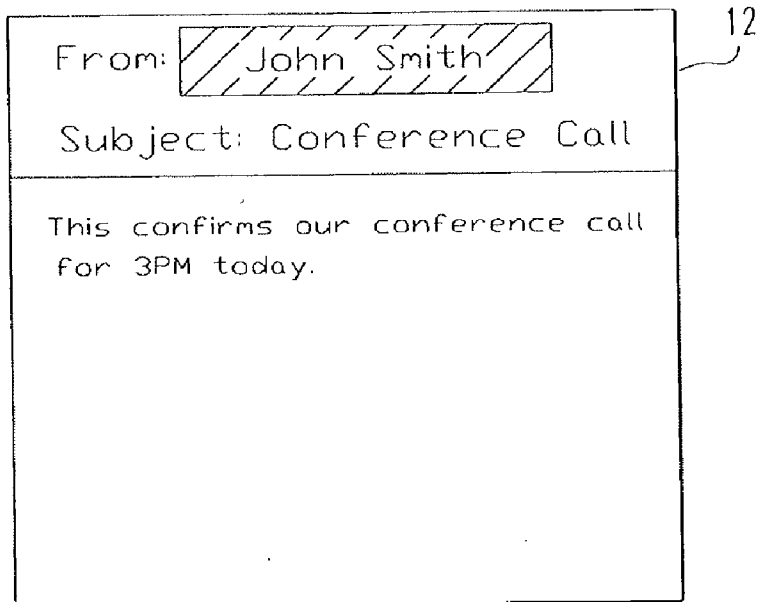 12
From: John Smith
Subject: Conference Call
This confirms our conference call
for 3PM today.